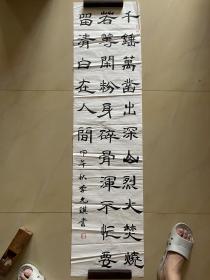 千錘萬鑿出深山烈火焚燒
若等閑粉身碎骨渾不怕要
留清白在人間
甲午秋李光祺書